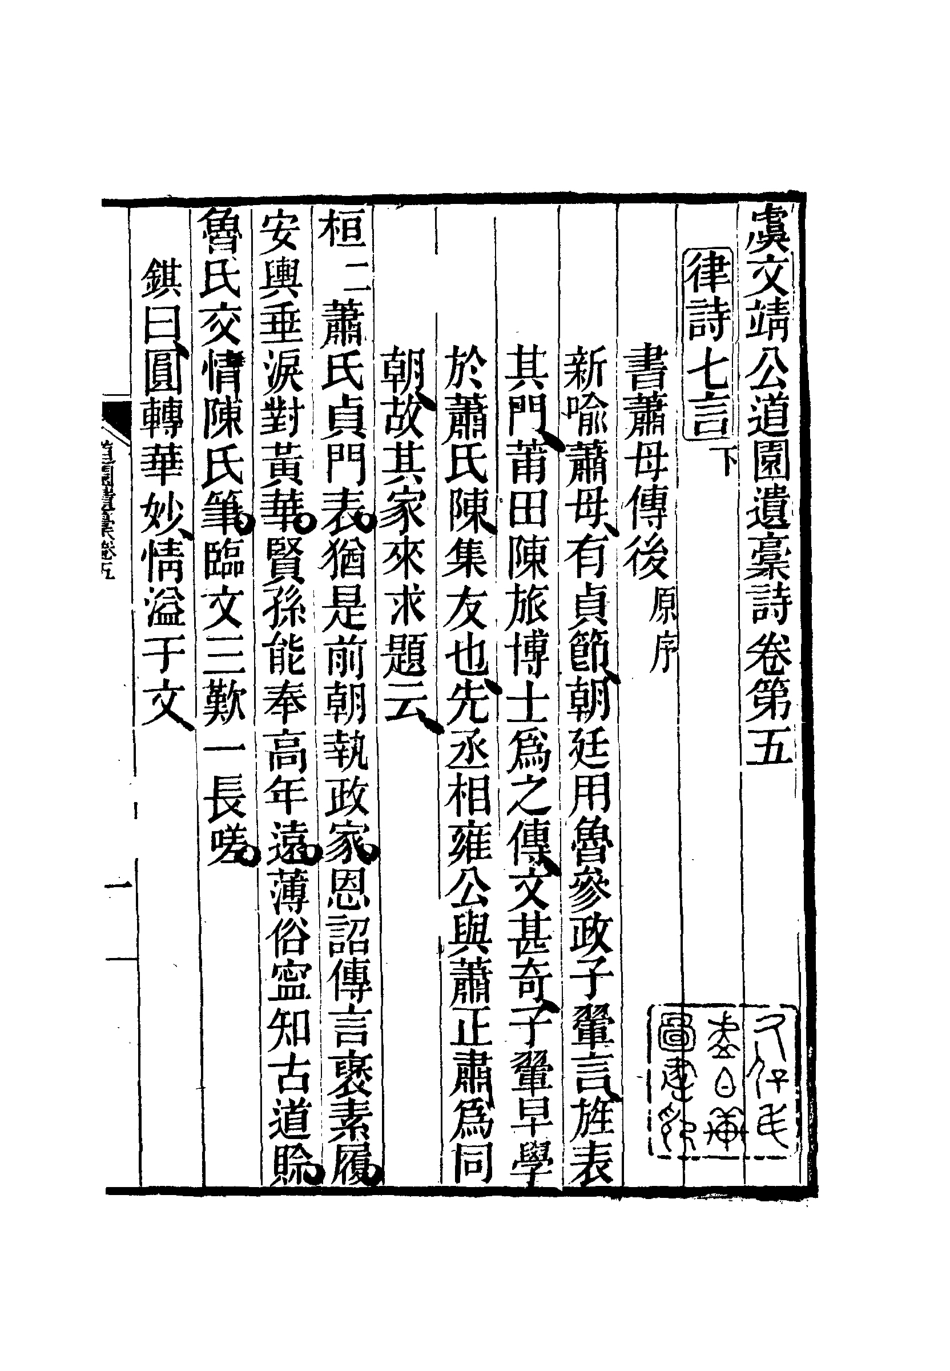 虞文靖公道園遺藁詩卷第五
律詩七言下
書蕭母傳後原序
新喻蕭母、有貞節、朝廷用魯參政子翬言、旌表
其門、莆田陳旅博士爲之傳、文甚奇、子翬早學
於蕭氏、陳、集友也、先丞相雍公與蕭正肅爲同
朝、故其家來求題云、
桓二蕭氏貞門表。猶是前朝執政家。恩詔傳言褒素履。
安輿垂淚對黃華。賢孫能奉高年遠。薄俗寍知古道賒。
魯氏交情陳氏筆。臨文三歎一長嗟。
錤曰、圓轉華妙、情溢于文、
道園遺藁卷五
一